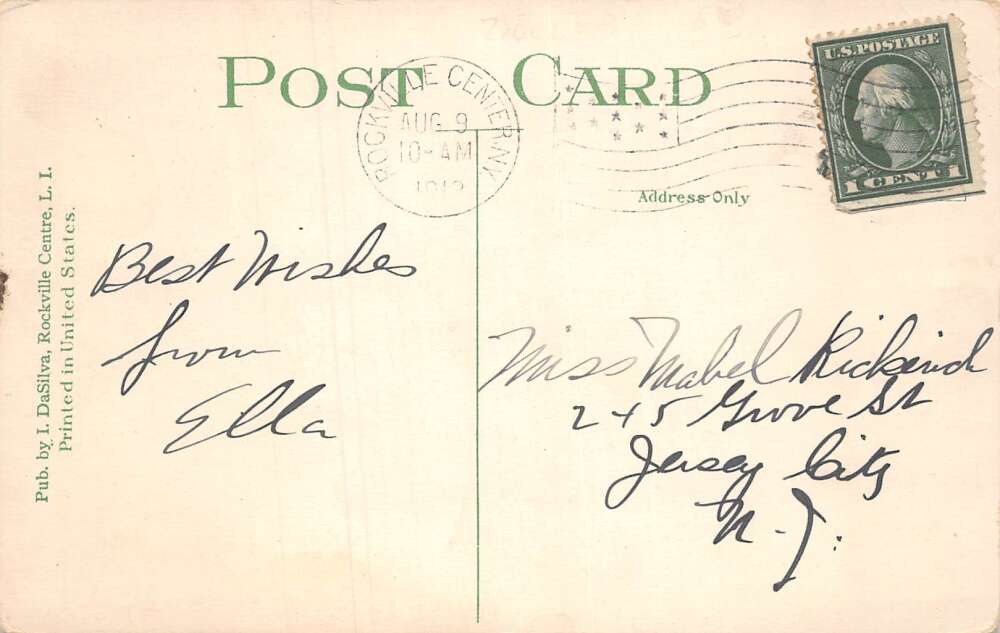 POST CARD
ROCKVILLE CENTER, N.Y.
AUG 9
10-AM
U.S. POSTAGE
1 CENT 1
Address Only
Pub. by I. DaSilva, Rockville Centre, L. I.
Printed in United States.
Best Wishes
from
Ella
Miss Mabel
245 Grove St
Jersey City
N. J.